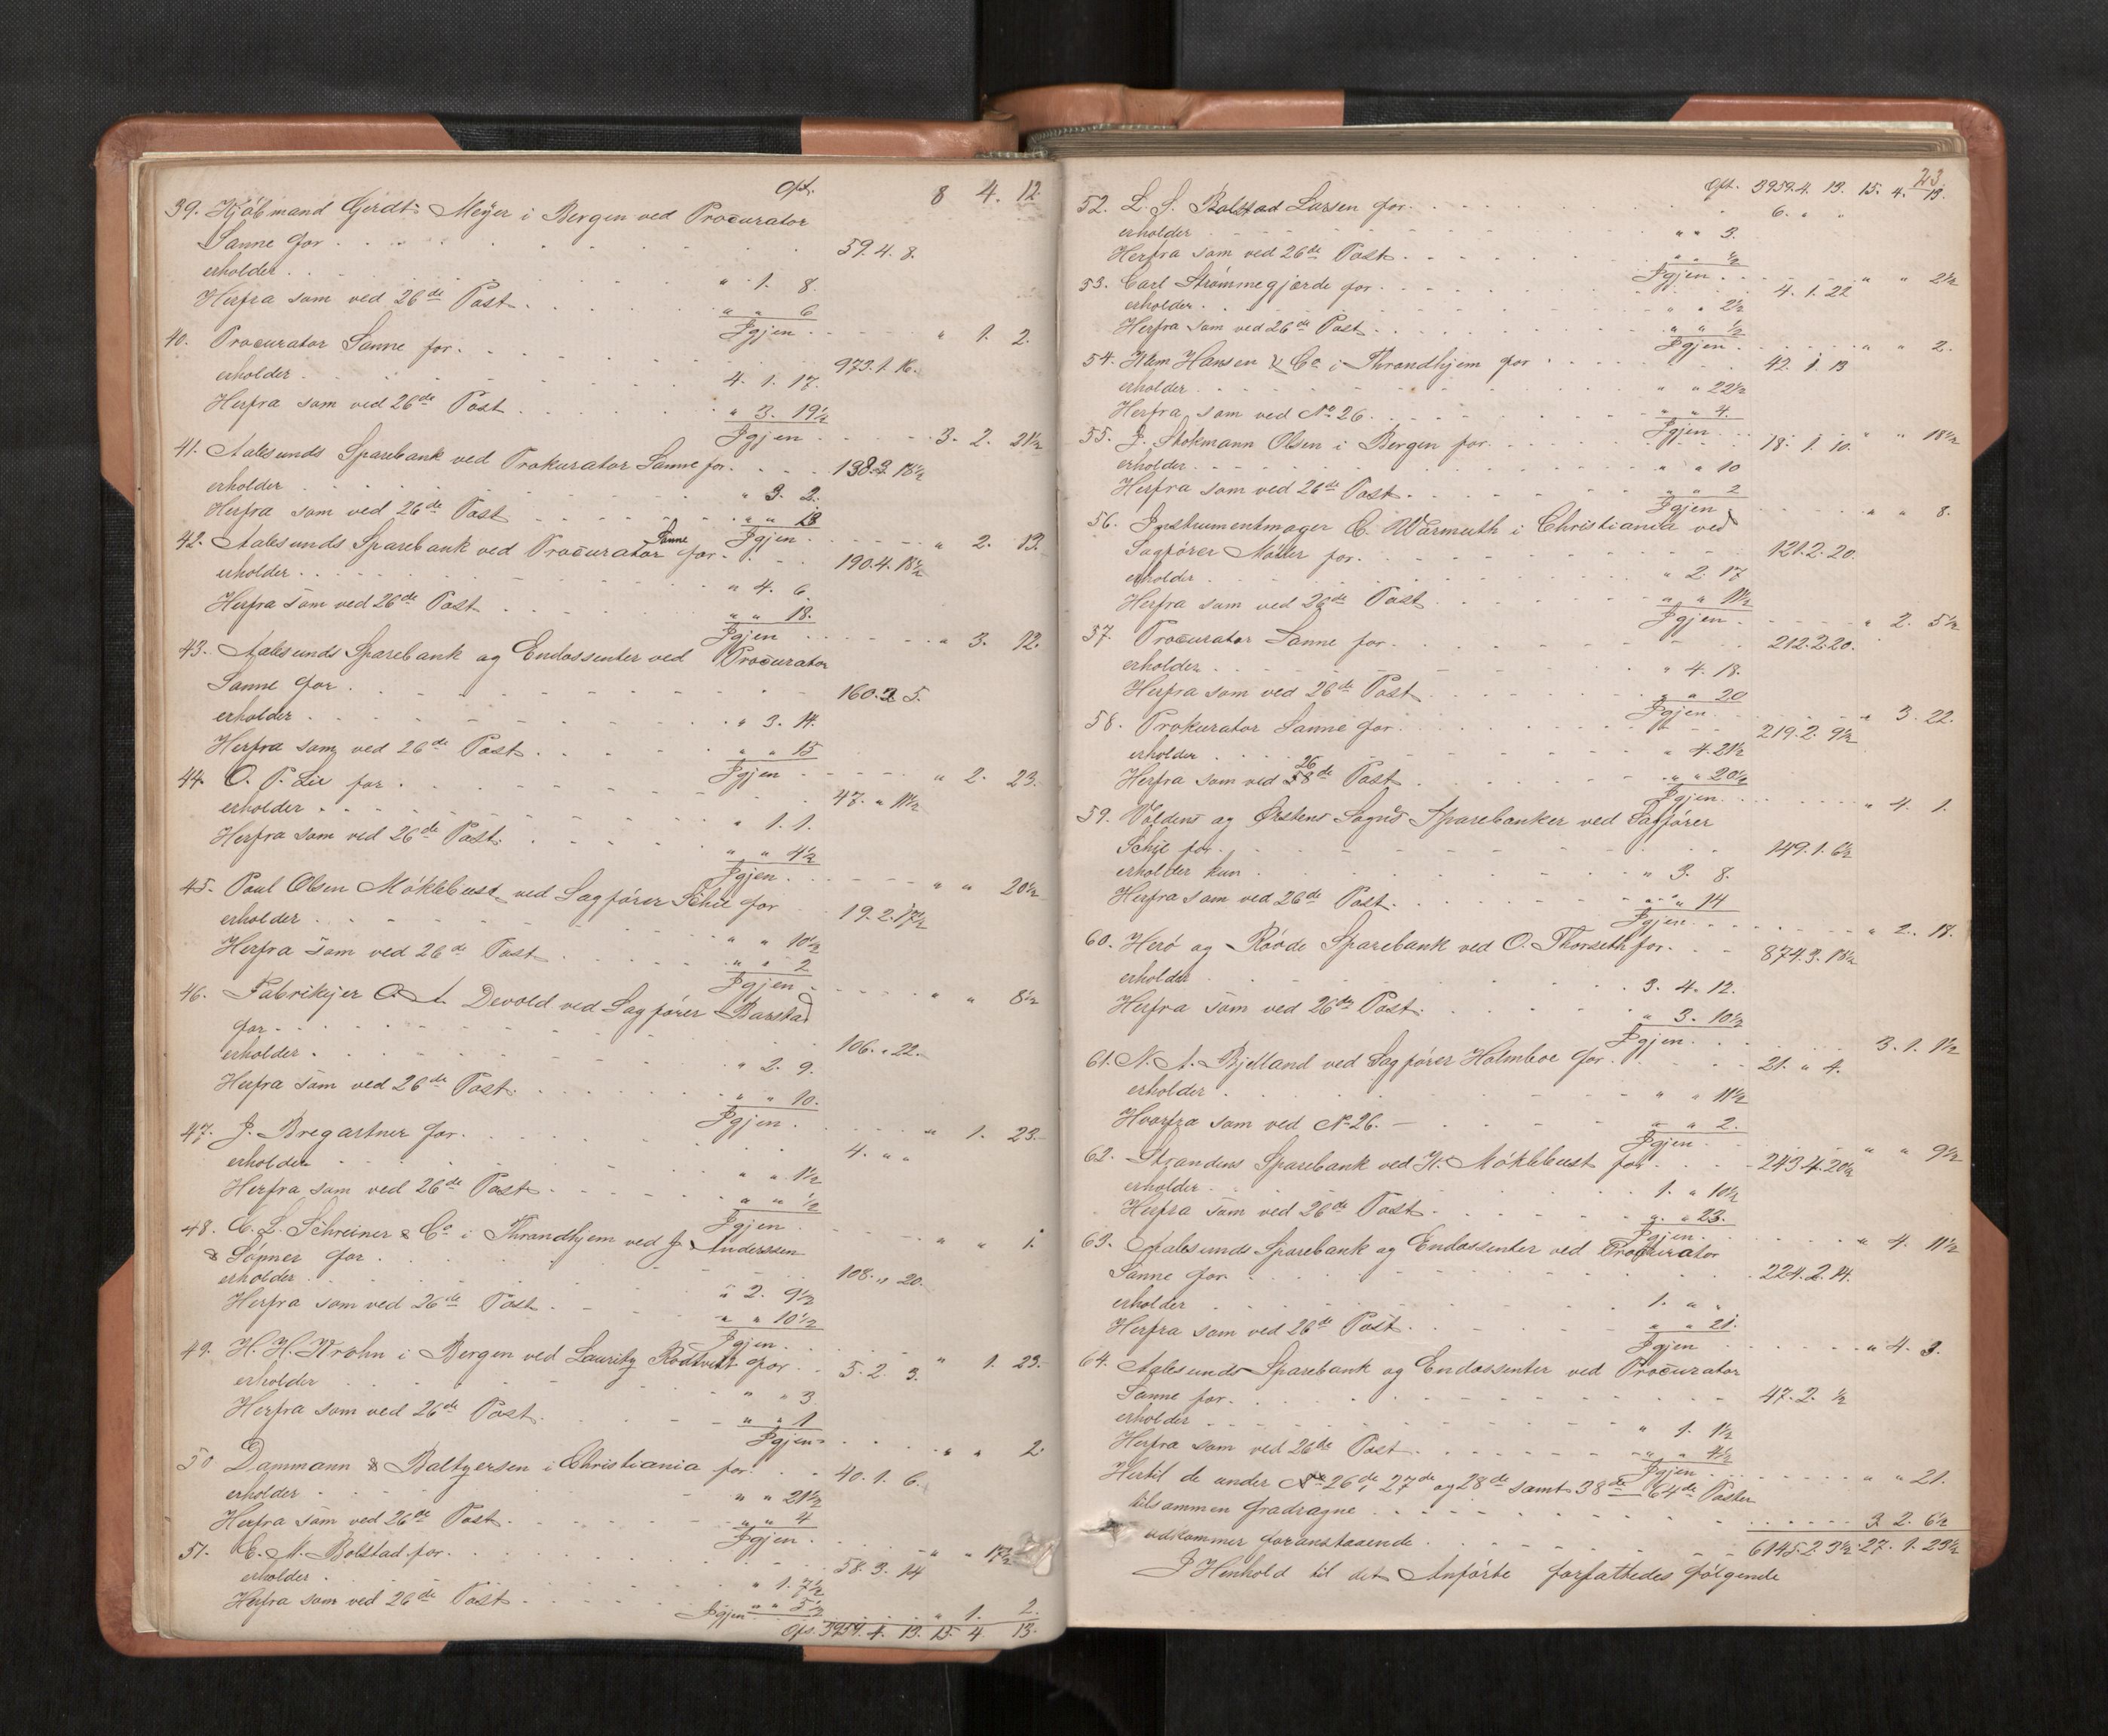 Opf. 8 4. 12.
39. Kjøbmand Gerdt Meyer i Bergen ved Procurator
Sanne for 59. 4. 8.
erholder „ 1. 8.
Herfra som ved 26de Post „ „ 6
Igjen „ 1. 2.
40. Procurator Sanne for 973. 1. 16.
erholder 4. 1. 17.
Herfra som ved 26de Post „ 3. 19½
Igjen 3. 2. 21½
41. Aalesunds Sparebank ved Prokurator Sanne for 138. 3. 18½
erholder „ 3. 2.
Herfra som ved 26de Post „ „ 13
Igjen „ 2. 13.
42. Aalesunds Sparebank ved Procurator Sanne for 190. 4. 18½
erholder „ 4. 6.
Herfra som ved 26de Post „ „ 18.
Igjen „ 3. 12.
43. Aalesunds Sparebank og Endossenter ved Procurator
Sanne for 160. 2. 5.
erholder „ 3. 14.
Herfra som ved 26de Post „ „ 15
Igjen „ 2. 23.
44. O. P. Lie for 47. „ 11½
erholder „ 1. 1.
Herfra som ved 26de Post. „ „ 4½
Igjen „ „ 20½
45. Poul Olsen Møklebust ved Sagfører Schie for 19. 2. 17½
erholder „ „ 10½
Herfra som ved 26de Post „ „ 2
Igjen „ „ 8½
46. Fabrikejer O. A. Devold ved Sagfører Barstad
for 106. „ 22.
erholder „ 2. 9.
Herfra som ved 26de Post. „ „ 10.
Igjen „ 1. 23.
47. J. Bregartner for 4. „ „
erholder „ „ 1½
Herfra som ved 26de Post „ „ ½
Igjen „ „ 1.
48. C. L. Schreiner & Co i Throndhjem ved J. Anderssen
& Sønner for 108. „ 20.
erholder „ 2. 9½
Herfra som ved 26de Post „ „ 10½
Igjen „ 1. 23.
49. H. H. Krohn i Bergen ved Lauritz Rødtvitt for 5. 2. 3.
erholder „ „ 3
Herfra som ved 26de Post „ „ 1
Igjen „ „ 2.
50 Dammann & Baltzersen i Christiania for 40. 1. 6.
erholder „ „ 21½
Herfra som ved 26de Post „ „ 4
Igjen „ „ 17½
51. E. M. Bolstad for 58. 3. 14
erholder „ 1. 7½
Herfra som ved 26de Post „ „ 5½
Igjen „ 1. 2.
Ops. 3959. 4. 13. 15. 4. 13.
23.
Opf. 3959. 4. 13. 15. 4. 13.
52. L. S. Bolstad Larsen for 6. „ „
erholder „ „ 3.
Herfra som ved 26de Post „ „ ½
Igjen „ „ 2½
53. Carl Strømmegjærde for 4. 1. 22
erholder „ „ 2½
Herfra som ved 26de Post „ „ ½
Igjen „ „ 2.
54. Hem Hansen & Co i Throndhjem for 42. 1. 13
erholder „ „ 22½
Herfra som ved No 26. „ „ 4.
Igjen „ „ 18½
55. J. Stokmann Olsen i Bergen for 18. 1. 10.
erholder „ „ 10
Herfra som ved 26de Post „ „ 2
Igjen „ „ 8.
56. Instrumentmager C. Warmuth i Christiania ved
Sagfører Møller for 121. 2. 20.
erholder „ 2. 17
Herfra som ved 26de Post „ „ 11½
Igjen „ 2. 5½
57. Procurator Sanne for 212. 2. 20.
erholder „ 4. 18.
Herfra som ved 26de Post „ „ 20
Igjen „ 3. 22.
58. Prokurator Sanne for 219. 2. 9½
erholder „ 4. 21½
26
Herfra som ved 58de Post „ „ 20½
Igjen „ 4. 1.
59. Voldens og Ørstens Sogns Sparebanker ved Sagfører
Schie for 149. 1. 6½
erholder kun „ 3. 8.
Herfra som ved 26de Post „ „ 14
Igjen „ 2. 18.
60. Herø og Røvde Sparebank ved O. Thorseth for 874. 3. 18½
erholder 3. 4. 12.
Herfra som ved 26de Post. „ 3. 10½
Igjen 3. 1. 1½
61. N. A. Bjelland ved Sagfører Holmboe for 21. „ 4.
erholder „ „ 11½
Hvorfra som ved No 26. „ „ 2.
Igjen „ „ 9½
62. Strandens Sparebank ved K. Møklebust for 243. 4. 20½
erholder 1. „ 10½
Herfra som ved 26de Post „ „ 23.
Igjen „ 4. 11½
63. Aalesunds Sparebank og Endossenter ved Procurator
Sanne for 224. 2. 14.
erholder 1. „ „
Herfra som ved 26de Post „ „ 21.
Igjen „ 4. 3.
64. Aalesunds Sparebank og Endossenter ved Procurator
Sanne for 47. 2. ½
erholder „ 1. 1½
Herfra som ved 26de Post „ „ 4½
Igjen „ „ 21.
Hertil de under No 26de, 27de og 28de samt 38de – 64de Poster
tilsammen fradragne 3. 2. 6½
udkommer foranstaaende 6145. 2. 3½. 27. 1. 23½
I Henhold til det Anførte forfattedes følgende